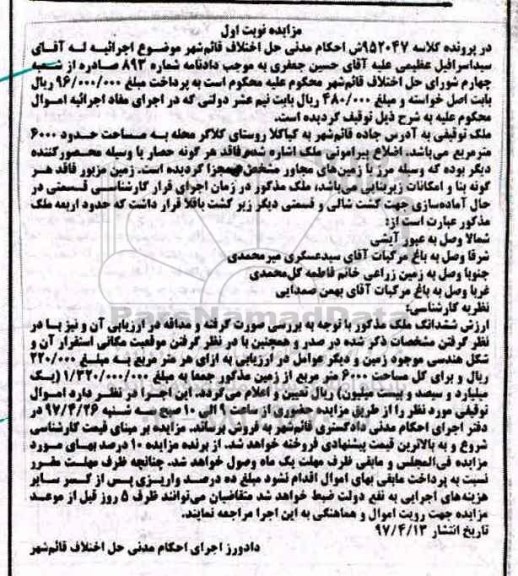 مزایده نوبت اول
در پرونده کلاسه ۹۵۲۰۴۷ش احکام مدنی حل اختلاف قائم‌شهر موضوع اجرائیه له آقای
سیداسرافیل عظیمی علیه آقای حسین جعفری به موجب دادنامه شماره ۸۹۳ صادره از شعبه
چهارم شورای حل اختلاف قائم‌شهر محکوم علیه محکوم است به پرداخت مبلغ ۹۶/۰۰۰/۰۰۰ ریال
بابت اصل خواسته و مبلغ ۴۸۰/۰۰۰ ریال بابت نیم عشر دولتی که در اجرای مفاد اجرائیه اموال
محکوم علیه به شرح ذیل توقیف گردیده است.
ملک توقیفی به آدرس جاده قائم‌شهر به کیاکلا روستای کلاگر محله به مساحت حدود ۶۰۰۰
مترمربع می‌باشد. اضلاع پیرامونی ملک اشاره شده فاقد هر گونه حصار یا وسیله محصورکننده
دیگر بوده که وسیله مرز با زمین‌های مجاور مشخص و مجزا گردیده است. زمین مزبور فاقد هر
گونه بنا و امکانات زیربنایی می‌باشد، ملک مذکور در زمان اجرای قرار کارشناسی قسمتی در
حال آماده‌سازی جهت کشت شالی و قسمتی دیگر زیر کشت باقلا قرار داشت که حدود اربعه ملک
مذکور عبارت است از:
شمالا وصل به عبور آیشی
شرقا وصل به باغ مرکبات آقای سیدعسکری میرمحمدی
جنوبا وصل به زمین زراعی خانم فاطمه گل‌محمدی
غربا وصل به باغ مرکبات آقای بهمن صمدایی
نظریه کارشناسی:
ارزش ششدانگ ملک مذکور با توجه به بررسی صورت گرفته و مداقه در ارزیابی آن و نیز با در
نظر گرفتن مشخصات ذکر شده در صدر و همچنین با در نظر گرفتن موقعیت مکانی استقرار آن و
شکل هندسی موجود زمین و دیگر عوامل در ارزیابی به ازای هر متر مربع به مبلغ ۲۲۰/۰۰۰
ریال و برای کل مساحت ۶۰۰۰ متر مربع از زمین مذکور جمعا به مبلغ ۱/۳۲۰/۰۰۰/۰۰۰ (یک
میلیارد و سیصد و بیست میلیون) ریال تعیین و اعلام می‌گردد. این اجرا در نظر دارد اموال
توقیفی مورد نظر را از طریق مزایده حضوری از ساعت ۹ الی ۱۰ صبح سه شنبه ۹۷/۴/۲۶ در
دفتر اجرای احکام مدنی دادگستری قائم‌شهر به فروش برساند. مزایده بر مبنای قیمت کارشناسی
شروع و به بالاترین قیمت پیشنهادی فروخته خواهد شد. از برنده مزایده ۱۰ درصد بهای مورد
مزایده فی‌المجلس و مابقی ظرف مهلت یک ماه وصول خواهد شد. چنانچه ظرف مهلت مقرر
نسبت به پرداخت مابقی بهای اموال اقدام نشود مبلغ ده درصد واریزی پس از کسر سایر
هزینه‌های اجرایی به نفع دولت ضبط خواهد شد متقاضیان می‌توانند ظرف ۵ روز قبل از موعد
مزایده جهت رویت اموال و هماهنگی به این اجرا مراجعه نمایند.
تاریخ انتشار ۹۷/۴/۱۳
دادورز اجرای احکام مدنی حل اختلاف قائم‌شهر
ParsNamadData